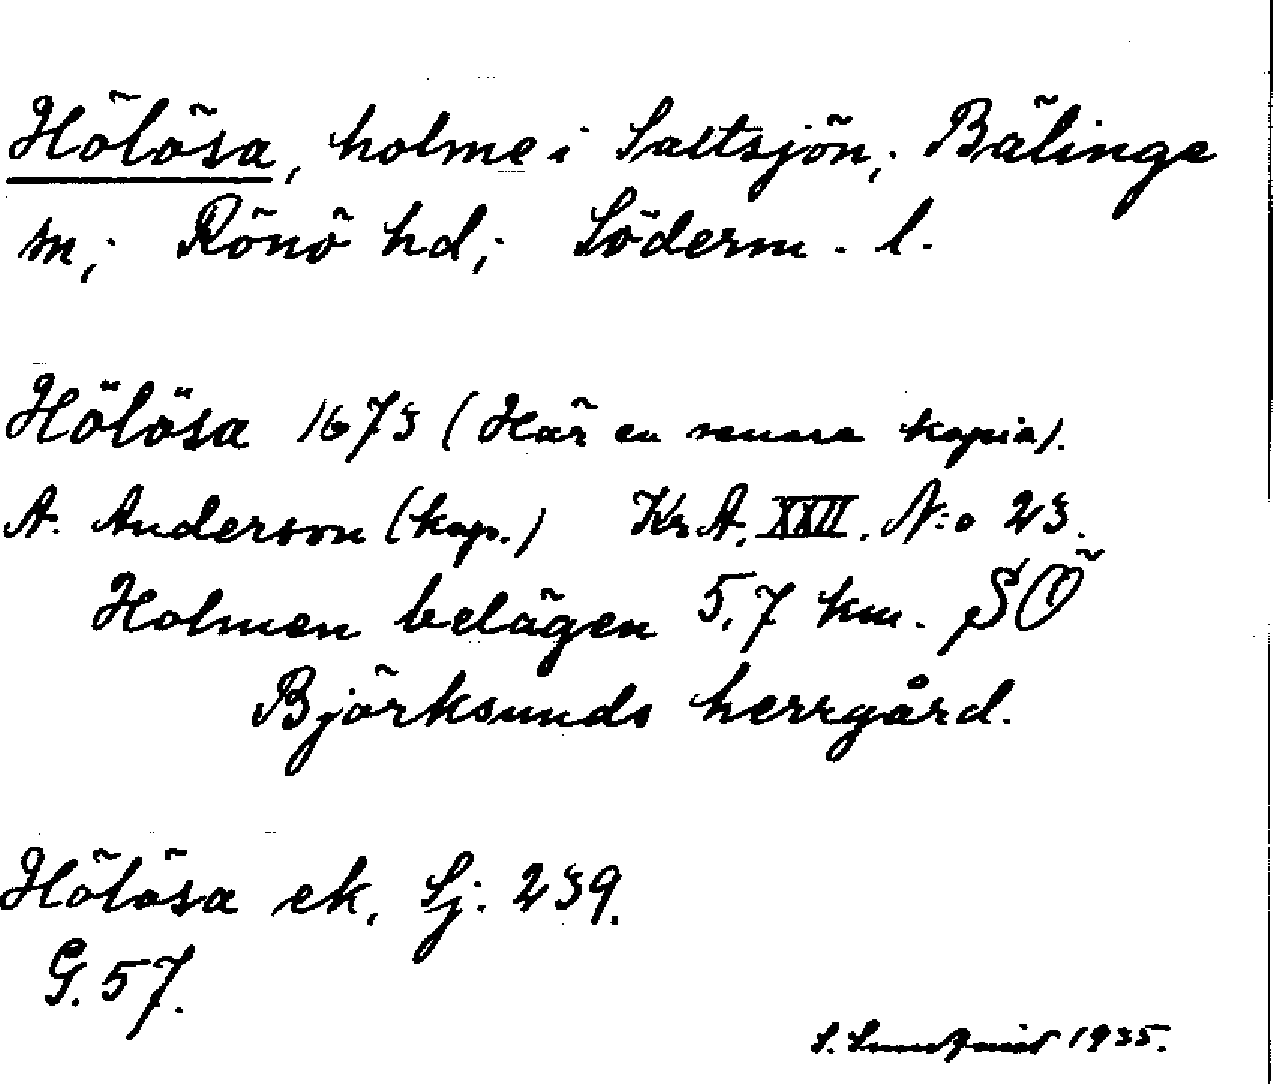 Hölösa, holme i Saltsjön; Bälinge
sn; Rönö hd; Söderm. l.
Hölösa 1673 (Här en senare kopia).
A. Anderson (kop.) Kr.A. XXII. N:o 23.
Holmen belägen 5,7 km. SÖ
Björksunds herrgård.
Hölösa ek. Sj: 239.
G. 57.
S. 1935.